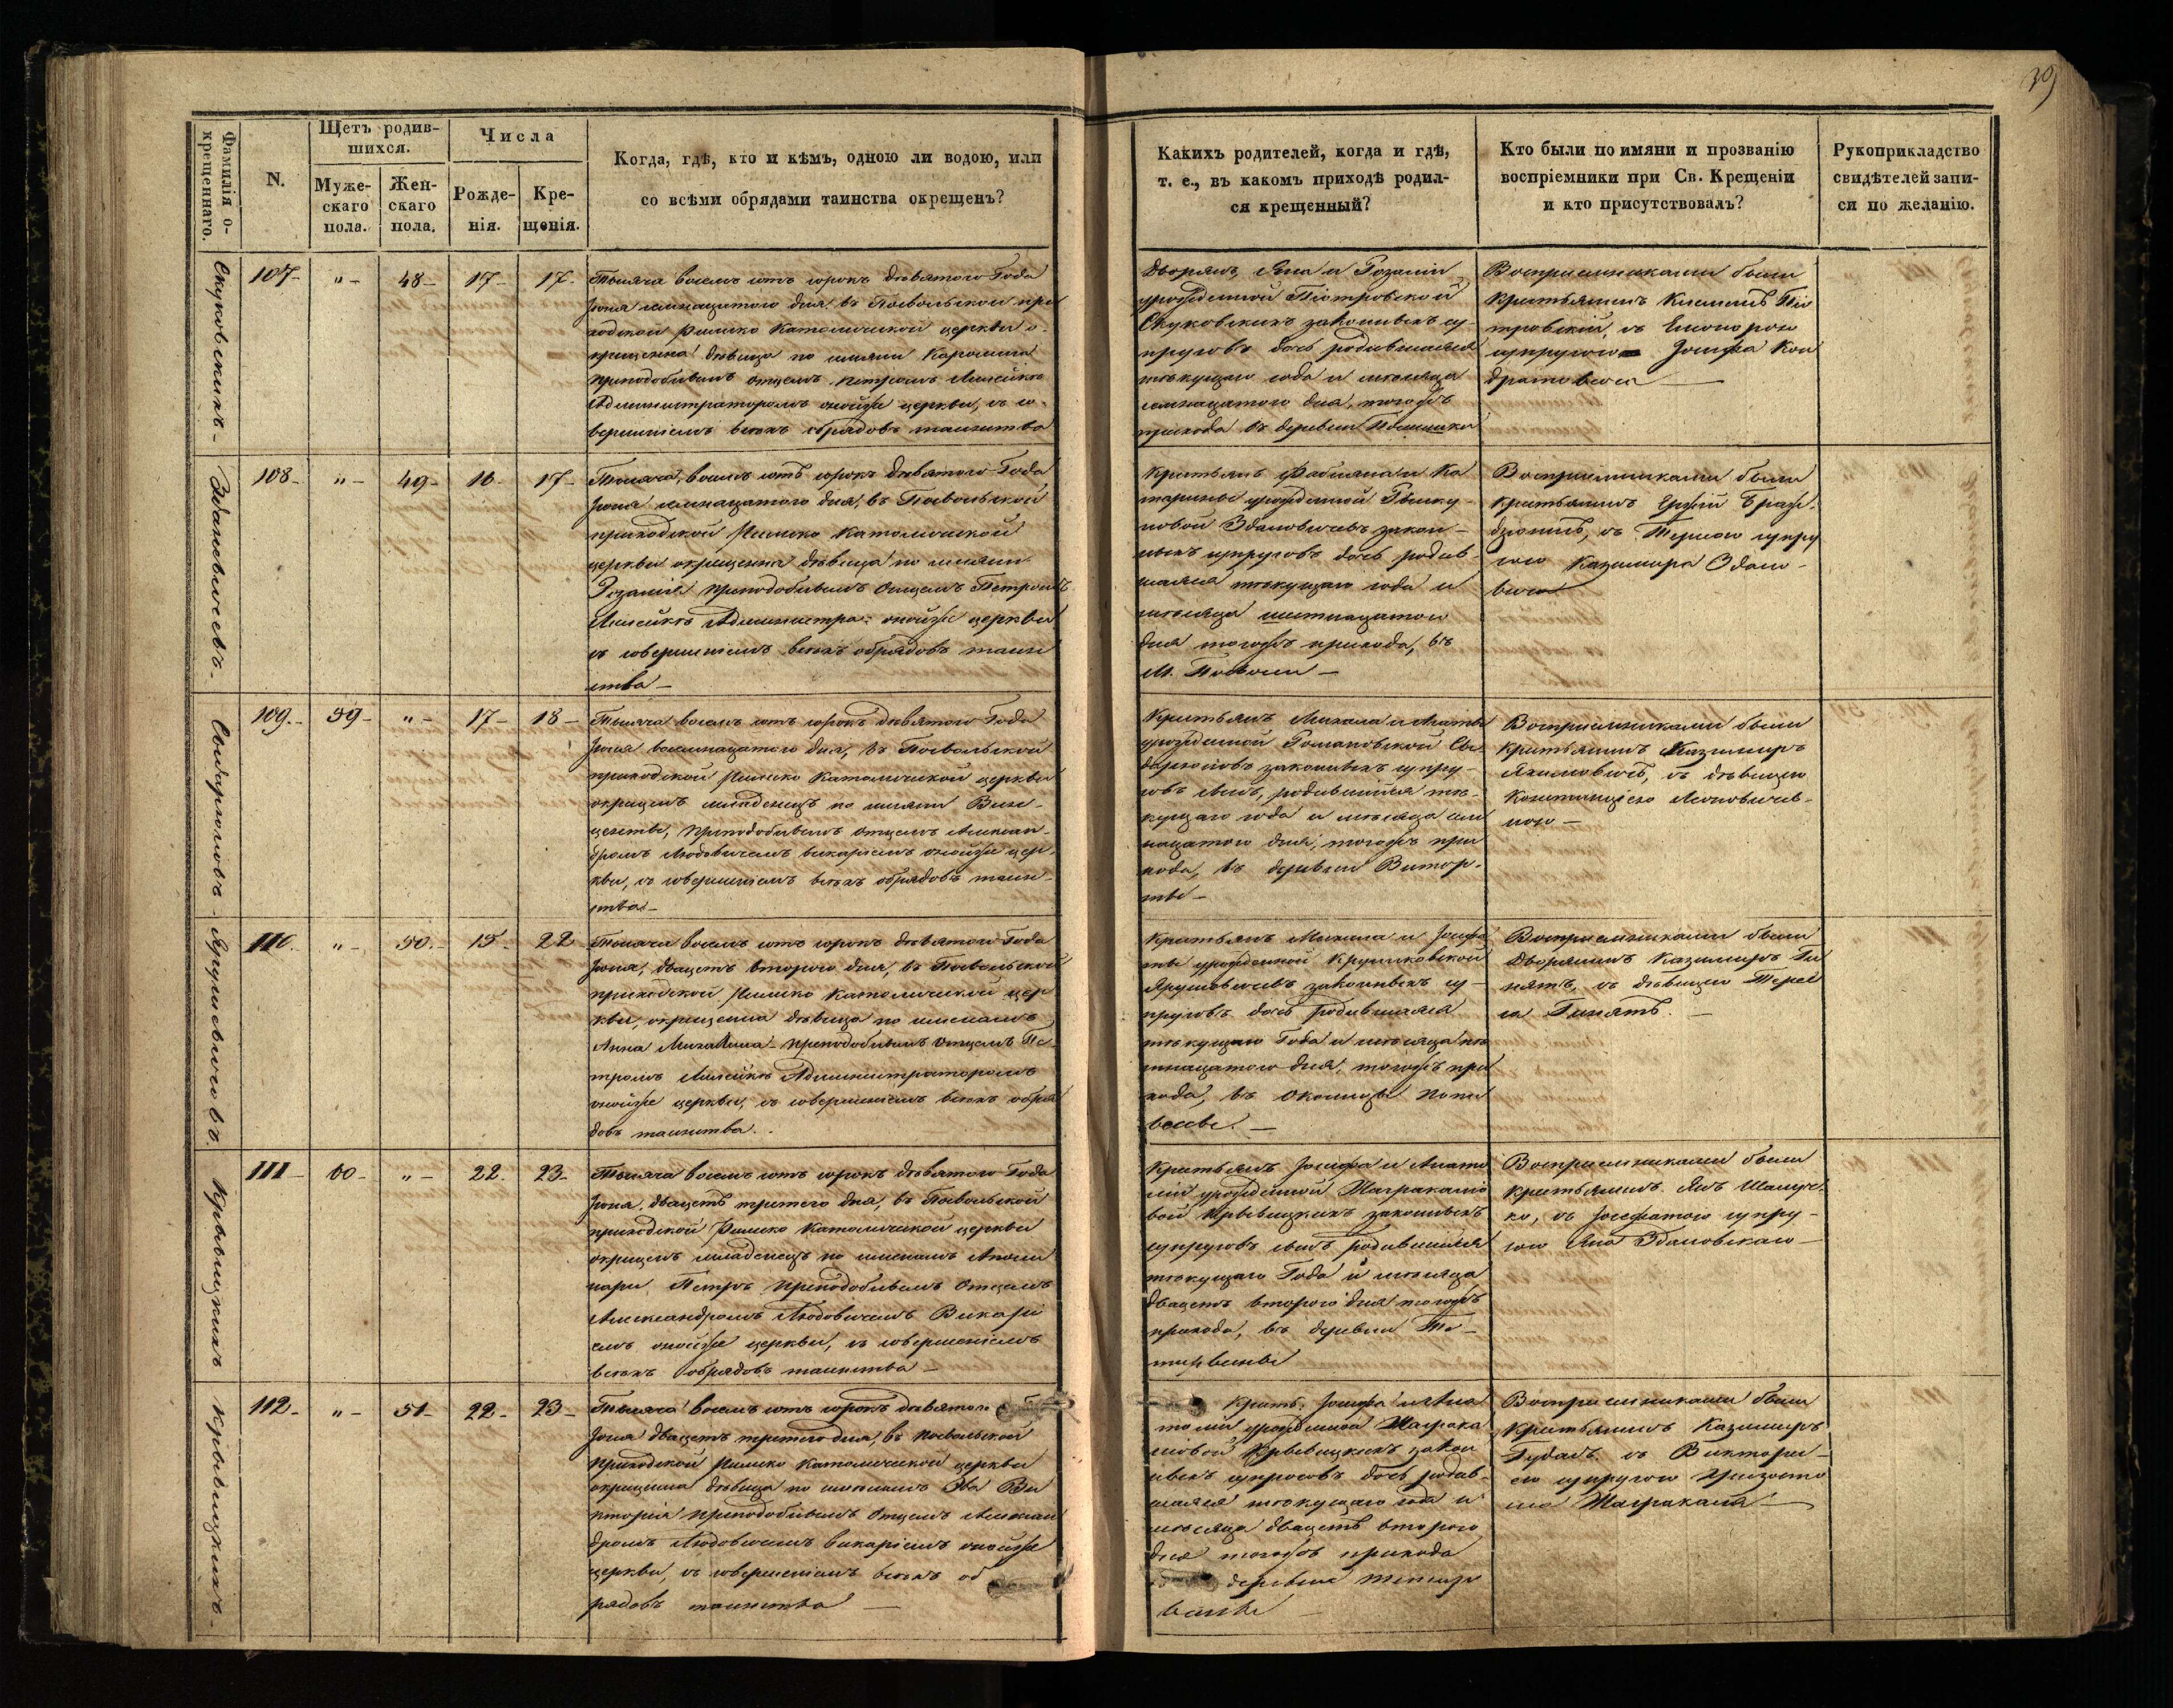 39
Фамилія о-
крещеннаго.
N.
Щетъ родив-
шихся.
Муже-
скаго
пола.
Жен-
скаго
пола.
Числа
Рожде-
нія.
Кре-
щенія.
Когда, гдѣ, кто и кѣмъ, одною ли водою, или
со всѣми обрядами таинства окрещенъ?
Какихъ родителей, когда и гдѣ,
т. е., въ какомъ приходѣ родил-
ся крещенный?
Кто были по имяни и прозванію
воспріемники при Св. Крещеніи
и кто присутствовалъ?
Рукоприкладство
свидѣтелей запи-
си по желанію.
Скуковскихъ-
107- "- 48- 17- 17-
Тысяча восемь сотъ сорокъ девятого Года
Іюня семнацатого дня въ Посвольской при
ходской Римско Католической церкви о-
крещенна дѣвица по имяни Каролина
преподобнымъ отцемъ Петромъ
Администраторомъ онойже церкви, съ со-
вершеніемъ всѣхъ обрядовъ таинства
Дворянъ Яна и Розаліи
урожденной Піотровской
Скуковскихъ законныхъ су-
пруговъ дочь родившаяся
текущаго года и мѣсяца
семнацатого дня, тогожъ
прихода въ деревни
Воспріемниками были
крестьянинъ Клеменсъ Піо
тровскій съ Елеонорою
супругою Іосифа Кон
дратовича
Здановичевъ-
108- "- 49- 16- 17-
Тысяча восемь сотъ сорокъ девятого Года
Іюня семнацатого дня, въ Посвольской
приходской Римско Католической
церкви окрещенна дѣвица по имяни
Розалія преподобнымъ Отцемъ Петромъ
Администра: онойже церкви
съ совершеніемъ всѣхъ обрядовъ таин
ства-
Крестьянъ Фабіяна и Ка
тарины урожденной
новой Здановичевъ закон-
ныхъ супруговъ дочь родив-
шаяся текущаго года и
мѣсяца шестнацатого
дня тогожъ прихода, въ
М. Посволи-
Воспріемниками были
крестьянинъ Ержій
съ Терезою супру
гою Казимира Здано-
вича
109.- 59- "- 17- 18-
Тысяча восемь сотъ сорокъ девятого Года
Іюня восемнацатого дня, въ Посвольской
приходской Римско Католической церкви
окрещенъ младенецъ по имяни Вин-
центы, преподобнымъ отцемъ Алексан-
дромъ Людовичемъ викаріемъ онойже цер-
кви, съ совершеніемъ всѣхъ обрядовъ таин-
ства-
Крестьянъ Михала и Агаты
урожденной Романовской
законныхъ супру-
говъ сынъ, родившійся те-
кущаго года и мѣсяца сем
нацатого дня, тогожъ при
хода, въ деревни
Воспріемниками были
крестьянинъ Казимиръ
съ дѣвицею
Констанціею
ною-
110. "- 50.- 15- 22-
Тысяча восемь сотъ сорокъ девятого Года
Іюня, двацеть второго дня, въ Посвольской
приходской Римско Католической цер
кви, окрещенна дѣвица по именамъ
Анна Михалина преподобнымъ Отцемъ Пе-
тромъ Администраторомъ
онойже церкви, съ совершеніемъ всѣхъ обря
довъ таинства.
Крестьянъ Михала и Іозефа
ты урожденной
законныхъ су-
пруговъ дочь родившаяся
текущаго Года и мѣсяца пя
тнацатого дня, тогожъ при
хода, въ околицы
Воспріемниками были
Дворянинъ Казимиръ Ги
нятъ, съ дѣвицею Терес
са Гинятъ.
Крывицкихъ
111- 60- "- 22. 23-
Тысяча восемь сотъ сорокъ девятого Года
Іюня, двацеть третего дня, въ Посвольской
приходской Римско Католической церкви
окрещенъ младенецъ по именамъ Аполи
нари Петръ преподобнымъ Отцемъ
Александромъ Людовичемъ Викарі
емъ онойже церкви, съ совершеніемъ
всѣхъ обрядовъ таинства-
Крестьянъ Іосифа и Анато
ліи урожденной
Крывицкихъ законныхъ
супруговъ сынъ родившійся
текущаго Года и мѣсяца
двацеть второго дня тогожъ
прихода, въ деревни
Воспріемниками были
крестьянинъ Янъ
съ Іозефатою супру-
гою Яна Здановскаго-
Крывицкихъ-
112- "- 51- 22- 23-
Тысяча восемь сотъ сорокъ девятого
Іюня двацеть третего дня, въ Посвольской
приходской Римско Католической церкви
окрещенна дѣвица по именамъ Эва Ви
кторія преподобнымъ Отцемъ Алексан
дромъ Людовичемъ викаріемъ онойже
церкви, съ совершеніемъ всѣхъ об
рядовъ таинства-
Крестъ. Іосифа и Ана
толіи урожденной
Крывицкихъ закон
ныхъ супруговъ дочь родив-
шаяся текущаго года и
мѣсяца двацеть второго
дня тогожъ прихода
деревни
Воспріемниками были
крестьянинъ Казимиръ
съ Викторі-
ею супругою